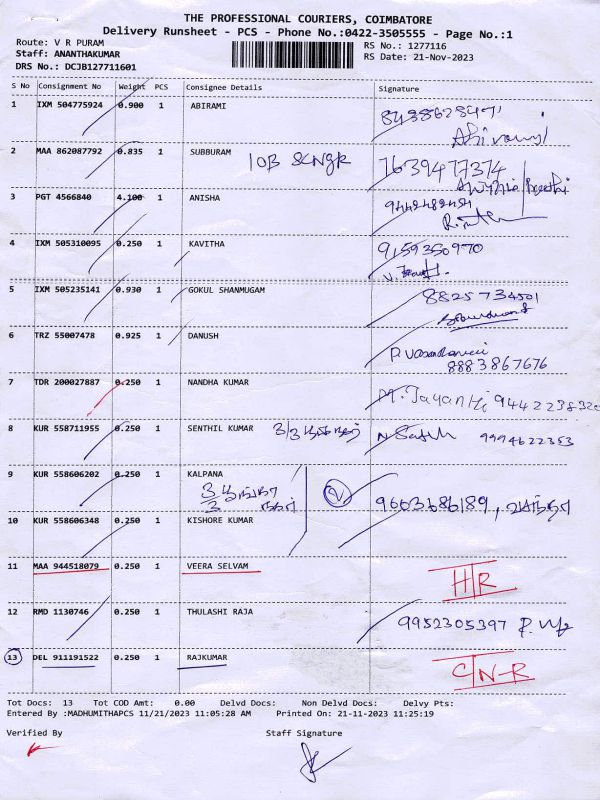 THE PROFESSIONAL COURIERS, COIMBATORE
Delivery Runsheet - PCS - Phone No.:0422-3505555 - Page No.:1
Route: V R PURAM
RS No.: 1277116
Staff: ANANTHAKUMAR
RS Date: 21-Nov-2023
DRS No.: DCJB127711601
S No Consignment No Weight PCS Consignee Details Signature
1 IXM 504775924 0.900 1 ABIRAMI
2 MAA 862087792 0.835 1 SUBBURAM 7639477374
IOB
3 PGT 4566840 4.100 1 ANISHA
4 IXM 505310095 0.250 1 KAVITHA 9159350970
5 IXM 505235141 0.930 1 GOKUL SHANMUGAM 8825734501
6 TRZ 55007478 0.925 1 DANUSH
8883867676
7 TDR 200027887 0.250 1 NANDHA KUMAR
8 KUR 558711955 0.250 1 SENTHIL KUMAR 3/3 9994622353
9 KUR 558606202 0.250 1 KALPANA
3/3 2 9603686189,
10 KUR 558606348 0.250 1 KISHORE KUMAR
11 MAA 944518079 0.250 1 VEERA SELVAM H/R
12 RMD 1130746 0.250 1 THULASHI RAJA 9952305397
13 DEL 911191522 0.250 1 RAJKUMAR C/N-R
Tot Docs: 13 Tot COD Amt: 0.00 Delvd Docs: Non Delvd Docs: Delvy Pts:
Entered By :MADHUMITHAPCS 11/21/2023 11:05:28 AM Printed On: 21-11-2023 11:25:19
Verified By Staff Signature